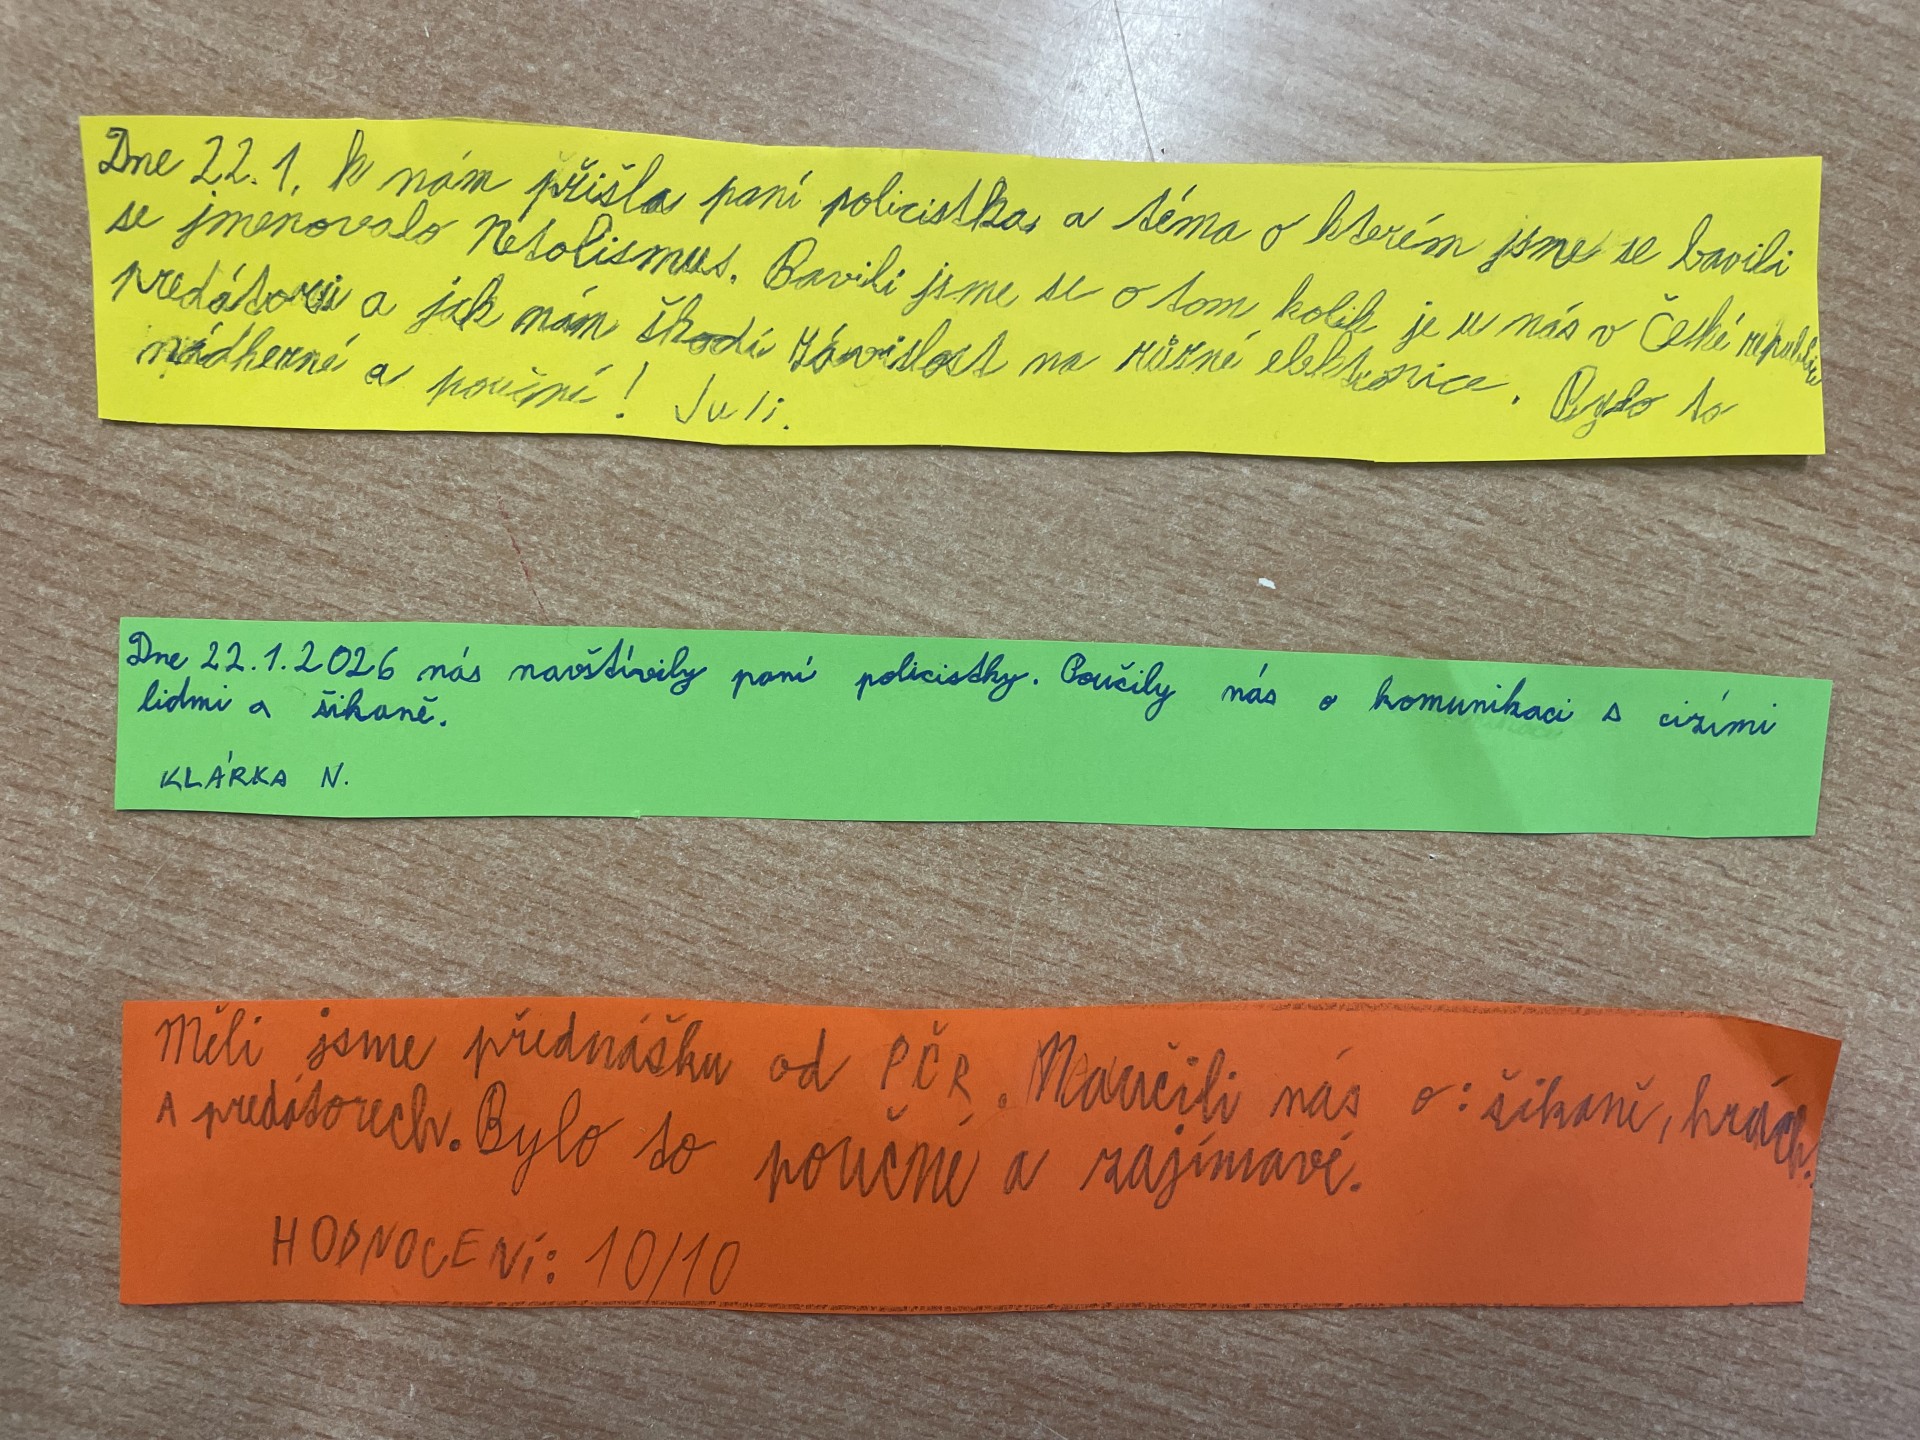 Dne 22.1. k nám přišla paní policistka, a téma o kterém jsme se bavili
se jmenovalo Netolismus. Bavili jsme se o tom kolik je u nás v České republice
predátorů a jak nám škodí závislost na různé elektronice. Bylo to
nádherné a poučné! Juli.
Dne 22.1.2026 nás navštívily paní policistky. Poučily nás o komunikaci s cizími
lidmi a šikaně.
KLÁRKA N.
Měli jsme přednášku od PČR. Naučili nás o: šikaně, hrách.
A predátorech. Bylo to poučné a zajímavé.
HODNOCENÍ: 10/10